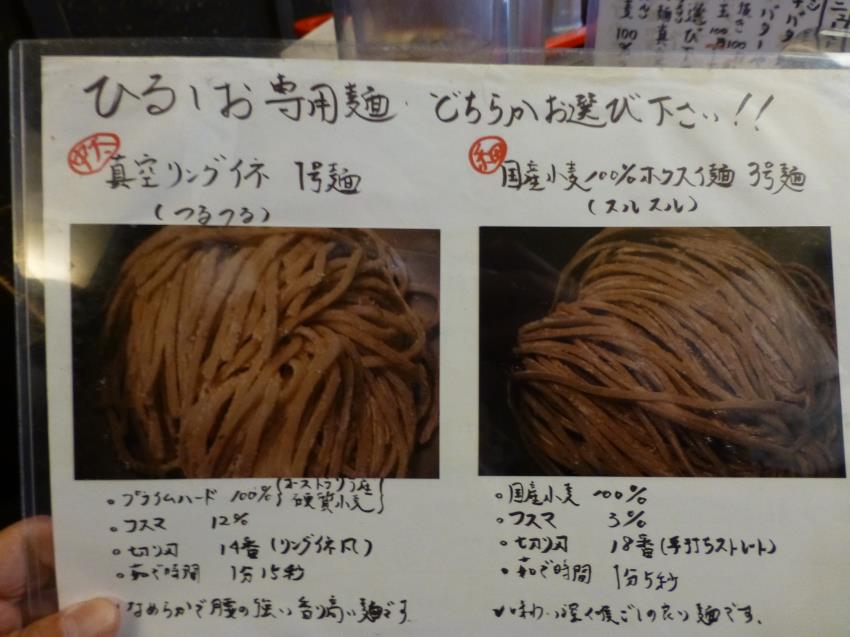 ひるしお専用麺 どちらかお選び下さい!!
真空リングイネ 1号麺
(つるつる)
細
国産小麦100% 麺 3号麺
(スルスル)
・プライムハード 100% {オーストラリア産
硬質小麦}
・フスマ 12%
・切り刃 14番(リングイネ風)
・茹で時間 1分15秒
・なめらかで腰の強い香り高い麺です。
・国産小麦 100%
・フスマ 3%
・切り刃 18番(手打ちストレート)
・茹で時間 1分5秒
味わい深く喉ごしの良い麺です。
100%